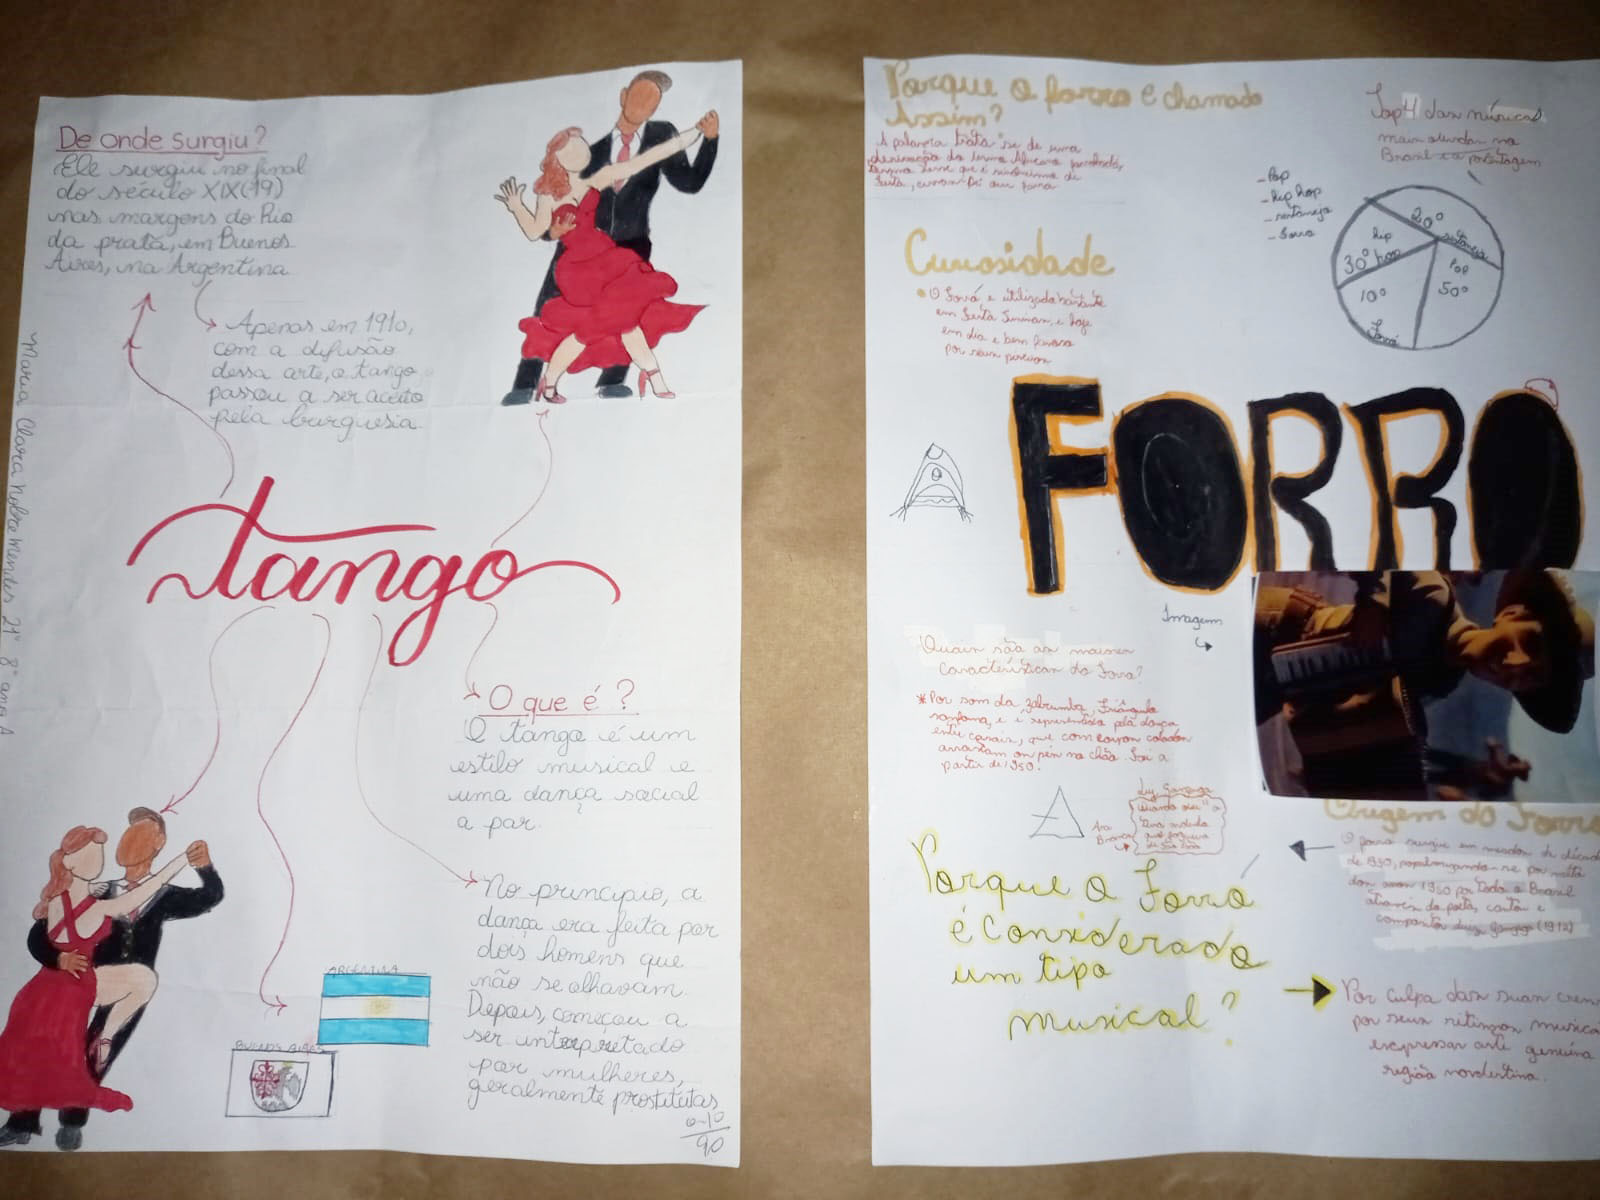 De onde surgiu?
Ele surgiu no final
do século XIX (19)
nas margens do Rio
da prata, em Buenos
Aires, na Argentina
Apenas em 1910,
com a difusão
dessa arte, o tango
passou a ser aceito
pela burguesia
Maria Clara Nobre Mendes 21° 8° ano A
tango
O que é?
O tango é um
estilo musical e
uma dança social
a par.
No principio, a
dança era feita por
dois homens que
não se olhavam.
Depois, começou a
ser interpretado
por mulheres,
geralmente prostitutas
ARGENTINA
BUENOS AIRES
0-10
9,0
Porque o forro e chamado
Assim?
A palavra trata-se de uma
Top 4 das músicas
mais ouvidas no
Brasil e a porcentagem
- Pop
- hip hop
- sertaneja
- Forro
20°
sertaneja
hip
hop
30°
Pop
50°
10°
Forró
Curiosidade
O Forró e utilizado bastante
em Festa Juninas, e hoje
em dia e bem famoso
por seus
FORRO
Imagem
Quais são as maiores
Características do Forro?
* Por som da zabumba, triângulo
sanfona, e e representado pela dança
entre casais, que com corpos colados
arrastam os pés no chão. Foi a
partir de 1950.
Luiz Gonzaga
Asa
Branca
Quando olei
de São João
Origem do Forro
O forro surgiu em meados da década
de 1930, popularizando-se por volta
dos anos 1950 por todo o Brasil
através do poeta, cantor e
compositor Luiz gonzaga (1912)
Porque o Forro
é Considerado
um tipo
musical?
Por culpa das suas
por seus ritmos
expressar arte genuína
região nordestina.